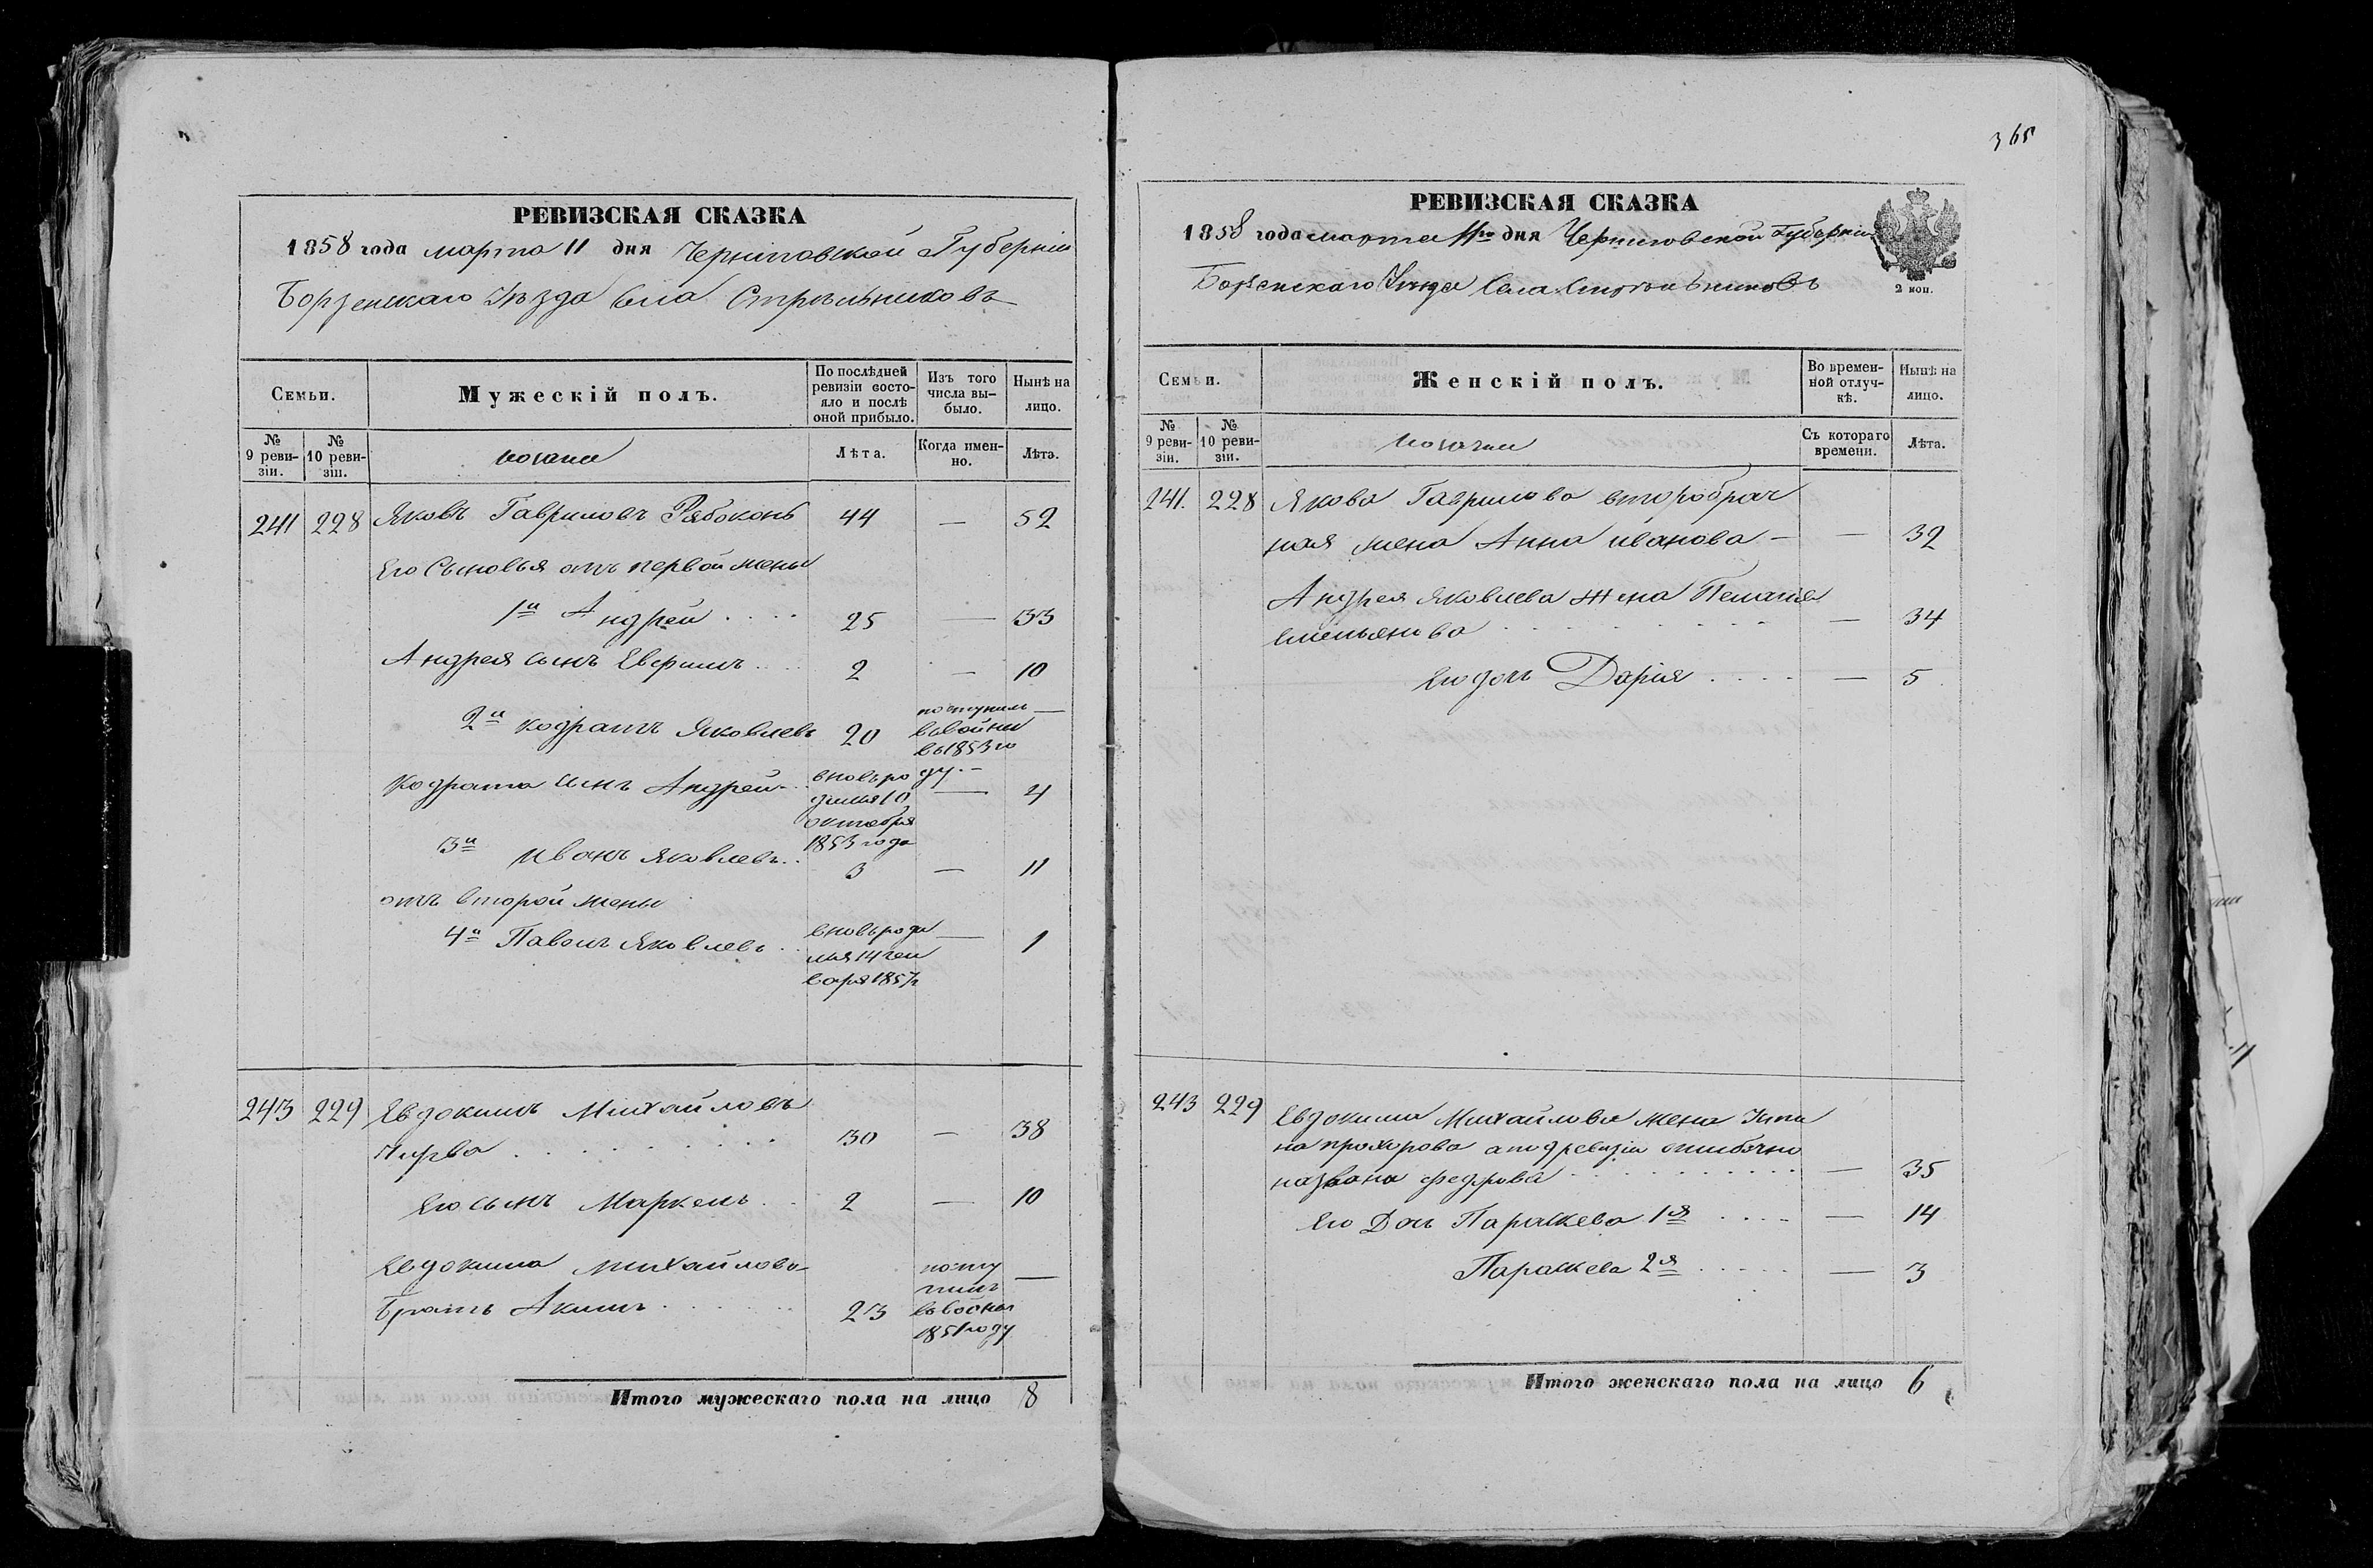 РЕВИЗСКАЯ СКАЗКА
1858 года марта 11 дня Черниговской Губерніи
Борзенскаго Уѣзда Села Стрѣльниковъ
Семьи.
№ 9 реви-зіи.
№ 10 реви-зіи.
Мужескій полъ.
козаки
По послѣдней ревизіи состо-яло и послѣ оной прибыло.
Лѣта.
Изъ того числа вы-было.
Когда имен-но.
Нынѣ на лицо.
Лѣта.
241 228 Яковъ Гавриловъ Рябоконь 44 — 52
Его Сыновья отъ первой жены
1й Андрей .... 25 — 33
Андрея сынъ Евфимъ ... 2 — 10
2й Кодратъ Яковлевъ 20 поступилъ в войны в 1853 го ду —
Кодрата сынъ Андрей .. вновь ро дился 10 октября 1853 года — 4
3й Иванъ Яковлевъ .. 3 — 11
отъ второй жены
4й Павелъ Яковлевъ .. вновь роди лся 14 ген варя 1857 г — 1
243 229 Евдокимъ Михайловъ
30 — 38
Его сынъ Маркелъ .. 2 — 10
Евдокима Михайлова
братъ Акимъ ...... 23 посту пилъ в войны 1851 году —
Итого мужескаго пола на лицо 8
365
РЕВИЗСКАЯ СКАЗКА
1858 года марта 11го дня Черниговской Губерніи
Борзенскаго Уѣзда Села Стрѣльниковъ
2 коп.
Семьи.
№ 9 реви-зіи.
№ 10 реви-зіи.
Женскій полъ.
козачки
Во времен-ной отлуч-кѣ.
Съ котораго времени.
Нынѣ на лицо.
Лѣта.
241. 228 Якова Гаврилова второбрач
ная жена Анна Иванова — — 32
Андрея Яковлева жена Пелагія
Емельянова ........ — 34
Его дочь Дарія .... — 5
243 229 Евдокима Михайлова жена Ули
на Прохорова а по 9 ревизіи ошибочно
названа Федрова ........ — 35
Его Дочь Параскева 1я .... — 14
Параскева 2я ..... — 3
Итого женскаго пола на лицо 6